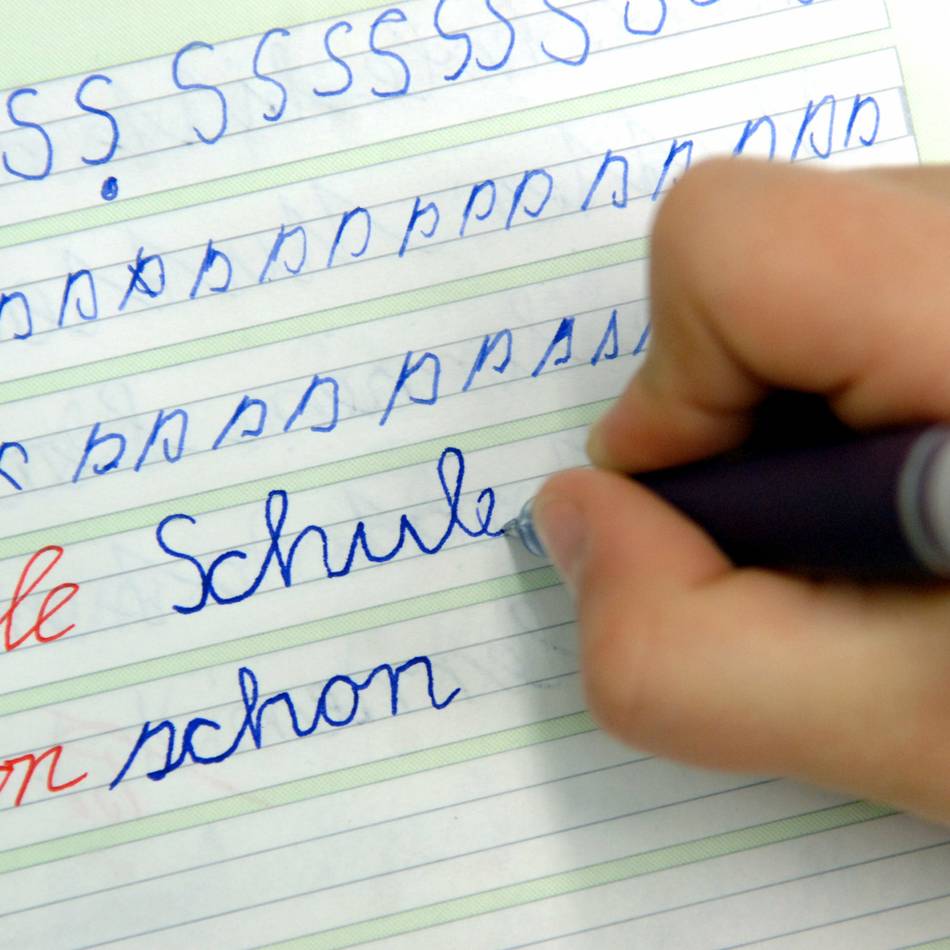 S S S S S S S S S S
s s s s s s s s s s s s s s
s s s s s s s s s
le Schule
on schon